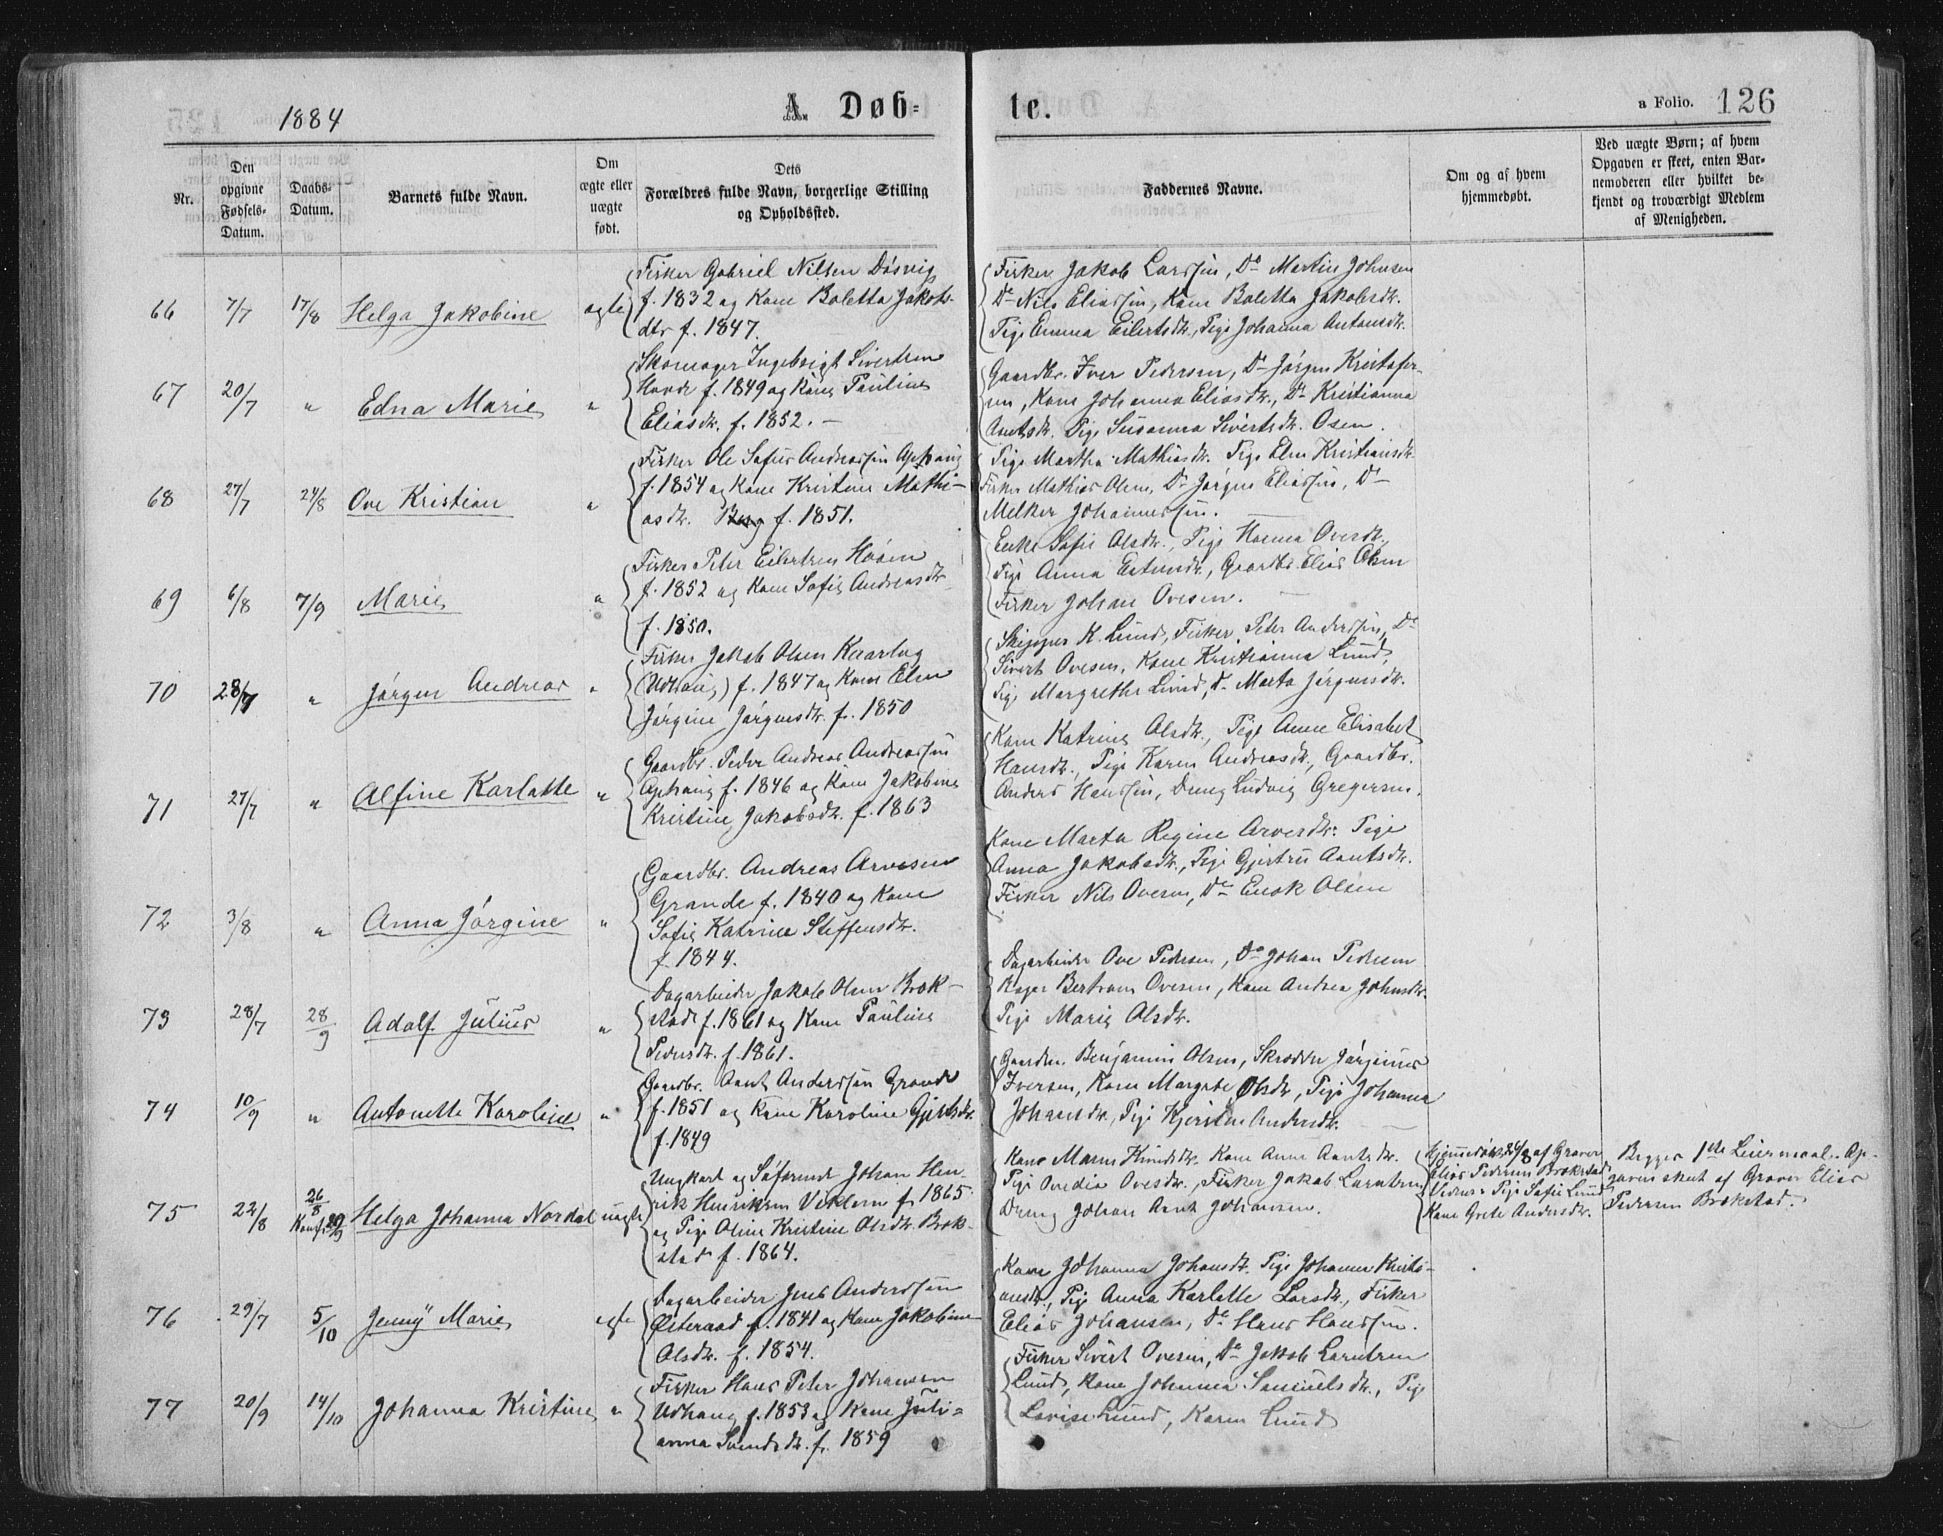 1884
A Døb-
te.
a Folio. 126
Nr.
Den opgivne Fødsels-Datum.
Daabs-Datum.
Barnets fulde Navn.
Om ægte eller uægte født.
Dets Forældres fulde Navn, borgerlige Stilling og Opholdssted.
Faddernes Navne.
Om og af hvem hjemmedøbt.
Ved uægte Børn; af hvem Opgaven er skeet, enten Barnemoderen eller hvilket bekjendt og troværdigt Medlem af Menigheden.
66 7/7 17/8 Helga Jakobine ægte
Fisker Gabriel Nilsen Døsvig
f. 1832 og Kone Boletta Jakobs-
dtr f. 1847.
Fisker Jakob Larssen, Do Martin Johnsen
Do Nils Eliassen, Kone Boletta Jakobsdtr.
Pige Emma Eilertsdtr., Pige Johanna Antonsdtr.
67 20/7 " Edna Marie "
Skomager Ingebrigt Sivertsen
Hovde f. 1849 og Kone Pauline
Eliasdtr. f. 1852. –
Gaardbr. Iver Pedersen, Do Jørgen Kristofer-
sen, Kone Johanna Eliasdtr., Do Kristianna
Arntsdtr. Pige Susanna Sivertsdtr. Osen.
68 27/7 24/8 Ove Kristian "
Fisker Ole Sofus Andreassen Ophaug
f. 1854 og Kone Kristine Mathi-
asdtr. Berg f. 1851.
Pige Martha Mathiasdtr. Pige Elen Kristiansdtr.
Fisker Mathias Olsen, Do Jørgen Eliassen, Do
Melker Johannessen.
69 6/8 7/9 Marie "
Fisker Peter Eilertsen Hoøen
f. 1852 og Kone Sofie Andreasdtr
f. 1850.
Enke Sofie Olsdtr., Pige Hanna Ovesdtr.,
Pige Anna Estensdtr, Gaardbr. Elias Olsen
Fisker Johan Ovesen. –
70 28/7 " Jørgen Andreas "
Fisker Jakob Olsen Kvarlug
(Udhaug) f. 1847 og Kone Elen
Jørgine Jørgensdtr. f. 1850
Skipper K. Lund, Fisker Peter Anderssen, Do
Sivert Ovesen, Kone Kristianna Lund,
Pige Margrethe Lund, Do Marta Jørgensdtr.
71 27/7 " Alfine Karlotte "
Gaardbr. Peder Andreas Andreassen
Ophaug f. 1846 og Kone Jakobine
Kristine Jakobsdtr. f. 1863
Kone Katrine Olsdtr., Pige Anne Elisabet
Hansdtr., Pige Karen Andreasdtr, Gaardbr.
Anders Hanssen, Dreng Ludvig Gregersen.
72 3/8 " Anna Jørgine "
Gaardbr. Andreas Arvesen
Grande f. 1840 og Kone
Sofie Katrine Steffensdtr.
f. 1844.
Kone Marta Regine Arvesdtr. Pige
Anna Jakobsdtr., Pige Gjertru Arntsdtr.
Fisker Nils Ovesen, Do Enok Olsen
73 28/7 28/9 Adolf Julius "
Dagarbeider Jakob Olsen Brok-
stad f. 1861 og Kone Pauline
Pedersdtr. f. 1861.
Dagarbeider Ove Pedersen, Do Johan Pedersen
Kager Bertram Ovesen, Kone Andrea Johnsdtr.
Pige Marie Olsdtr.
74 10/9 " Antonette Karoline "
Gaardbr. Arnt Anderssen Grande
f. 1851 og Kone Karoline Gjertsdtr
f. 1849
Gaardbr. Benjamin Olsen, Skrædder Jørginus
Iversen, Kone Margrete Olsdtr, Pige Johanna
Johansdtr., Pige Kjersten Andersdtr.
75 22/8 26/8 Konf. 28/9 Helga Johanna Nordal uægte
Ungkarl og Søfarende Johan Hen-
rik Henriksen Viklem f. 1865
og Pige Oline Kristine Olsdtr Brok-
stad f. 1864.
Kone Maren Knudsdtr. Kone Anne Arntsdtr.
Pige Ovedia Ovesdtr. Fisker Jakob Larntzen
Dreng Johan Arnt Johansen.
Hjemmedøbt 26/8 af Graver
Elias Pedersen Brokstad
Vidner: Pige Sofie Lund
Kone Grete Andersdtr.
Begges 1ste Leiermaal. Op-
gaven skeet af Graver Elias
Pedersen Brokstad.
76 29/7 5/10 Jenny Marie ægte
Dagarbeider Jens Anderssen
Østeraad f. 1841 og Kone Jakobine
Olsdtr. f. 1854.
Kone Johanna Johansdtr. Pige Johanna Kristi-
ansdtr., Pige Anna Karlotte Larsdtr., Fisker
Elias Johansen, Do Hans Hanssen.
77 20/9 14/10 Johanna Kristine "
Fisker Hans Peter Johansen
Udhaug f. 1853 og Kone Juli-
anna Svendsdtr. f. 1859
Fisker Sivert Ovesen, Do Jakob Larntzen
Lund, Kone Johanna Samuelsdtr., Pige
Lovise Lund, Karen Lund